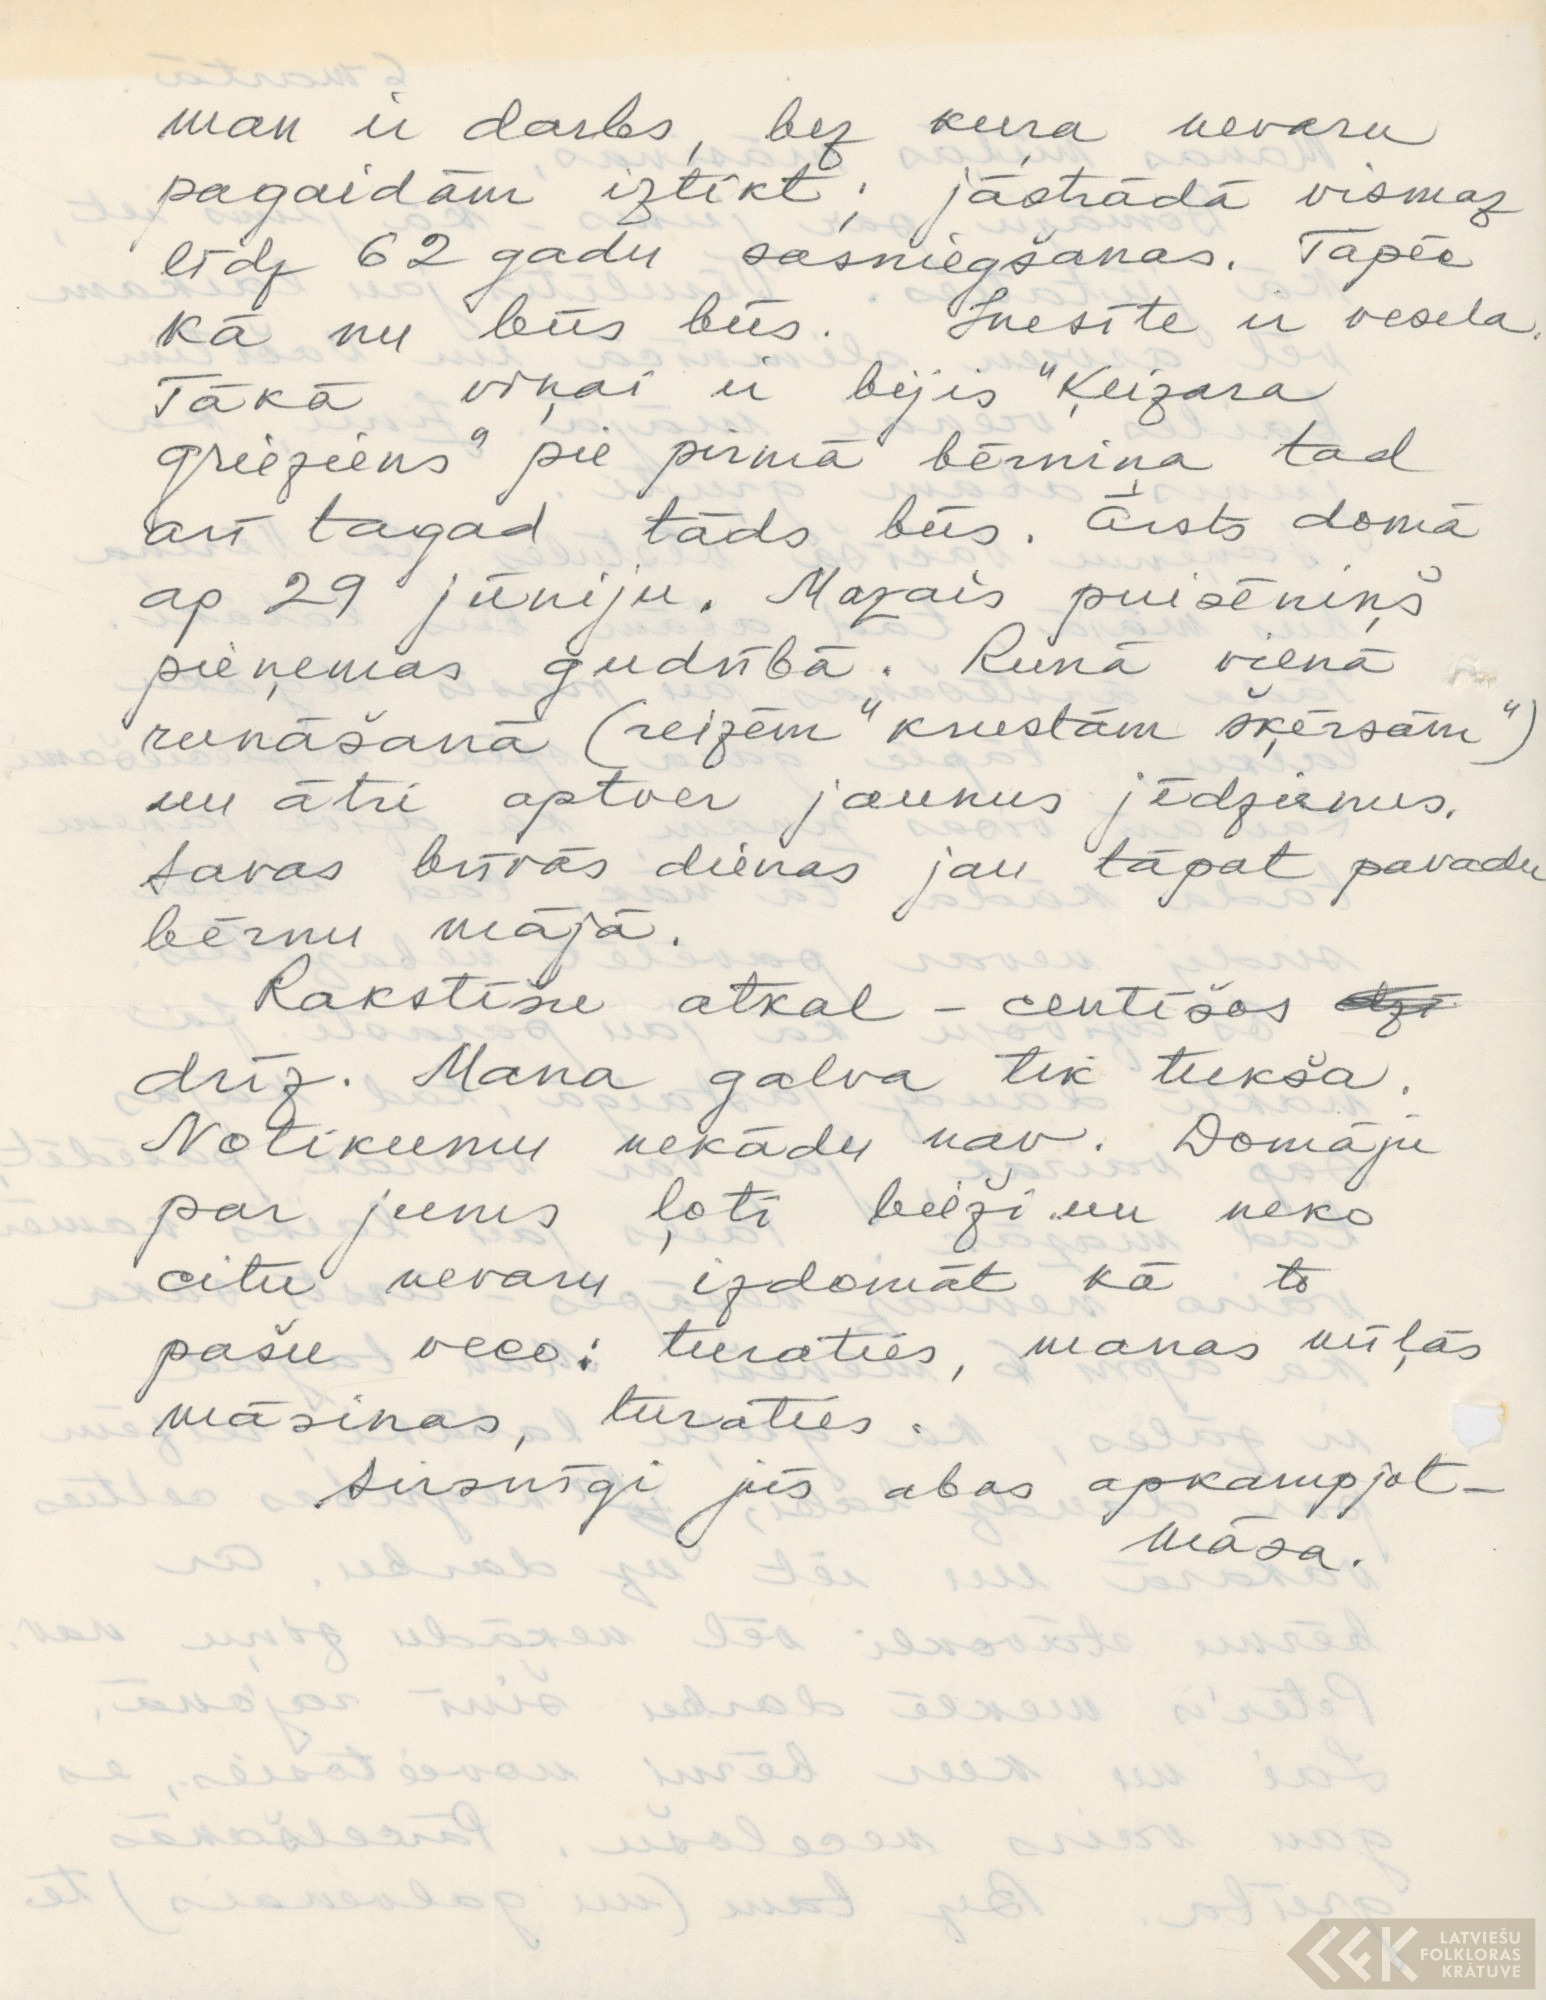 man ir darbs, bez kuŗa nevaru
pagaidām iztikt; jāstrādā vismaz
līdz 62 gadu sasniegšanas. Tāpēc
kā nu būs būs. Inesīte ir vesela.
Tākā viņai ir bijis "Ķeizara
grieziens" pie pirmā bērniņa tad
arī tagad tāds būs. Ārsts domā
ap 29 jūniju. Mazais puisēniņš
pieņemas gudrībā. Runā vienā
runāšanā (reizēm "krustām šķērsām")
un ātri aptver jaunus jēdzienus.
Savas brīvās dienas jau tāpat pavadu
bērnu mājā.
Rakstīšu atkal – centīšos dzi
drīz. Mana galva tik tukša.
Notikumu nekādu nav. Domāju
par jums ļoti bieži un neko
citu nevaru izdomāt kā to
pašu veco: turaties, manas mīļās
māsiņas, turaties.
Sirsnīgi jūs abas apkampjot –
māsa.
LATVIEŠU
FOLKLORAS
KRĀTUVE